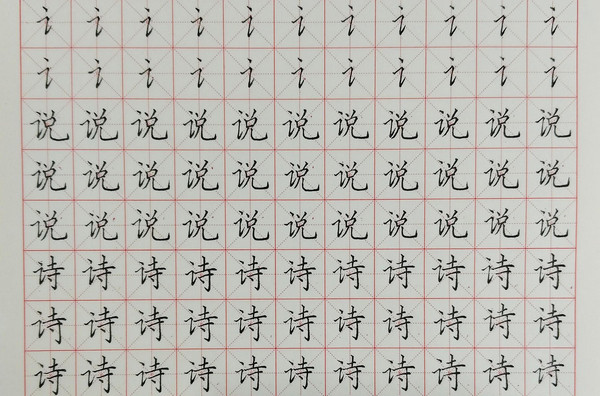 讠讠讠讠讠讠讠讠讠讠讠
讠讠讠讠讠讠讠讠讠讠讠
说说说说说说说说说说说
说说说说说说说说说说说
说说说说说说说说说说说
诗诗诗诗诗诗诗诗诗诗诗
诗诗诗诗诗诗诗诗诗诗诗
诗诗诗诗诗诗诗诗诗诗诗